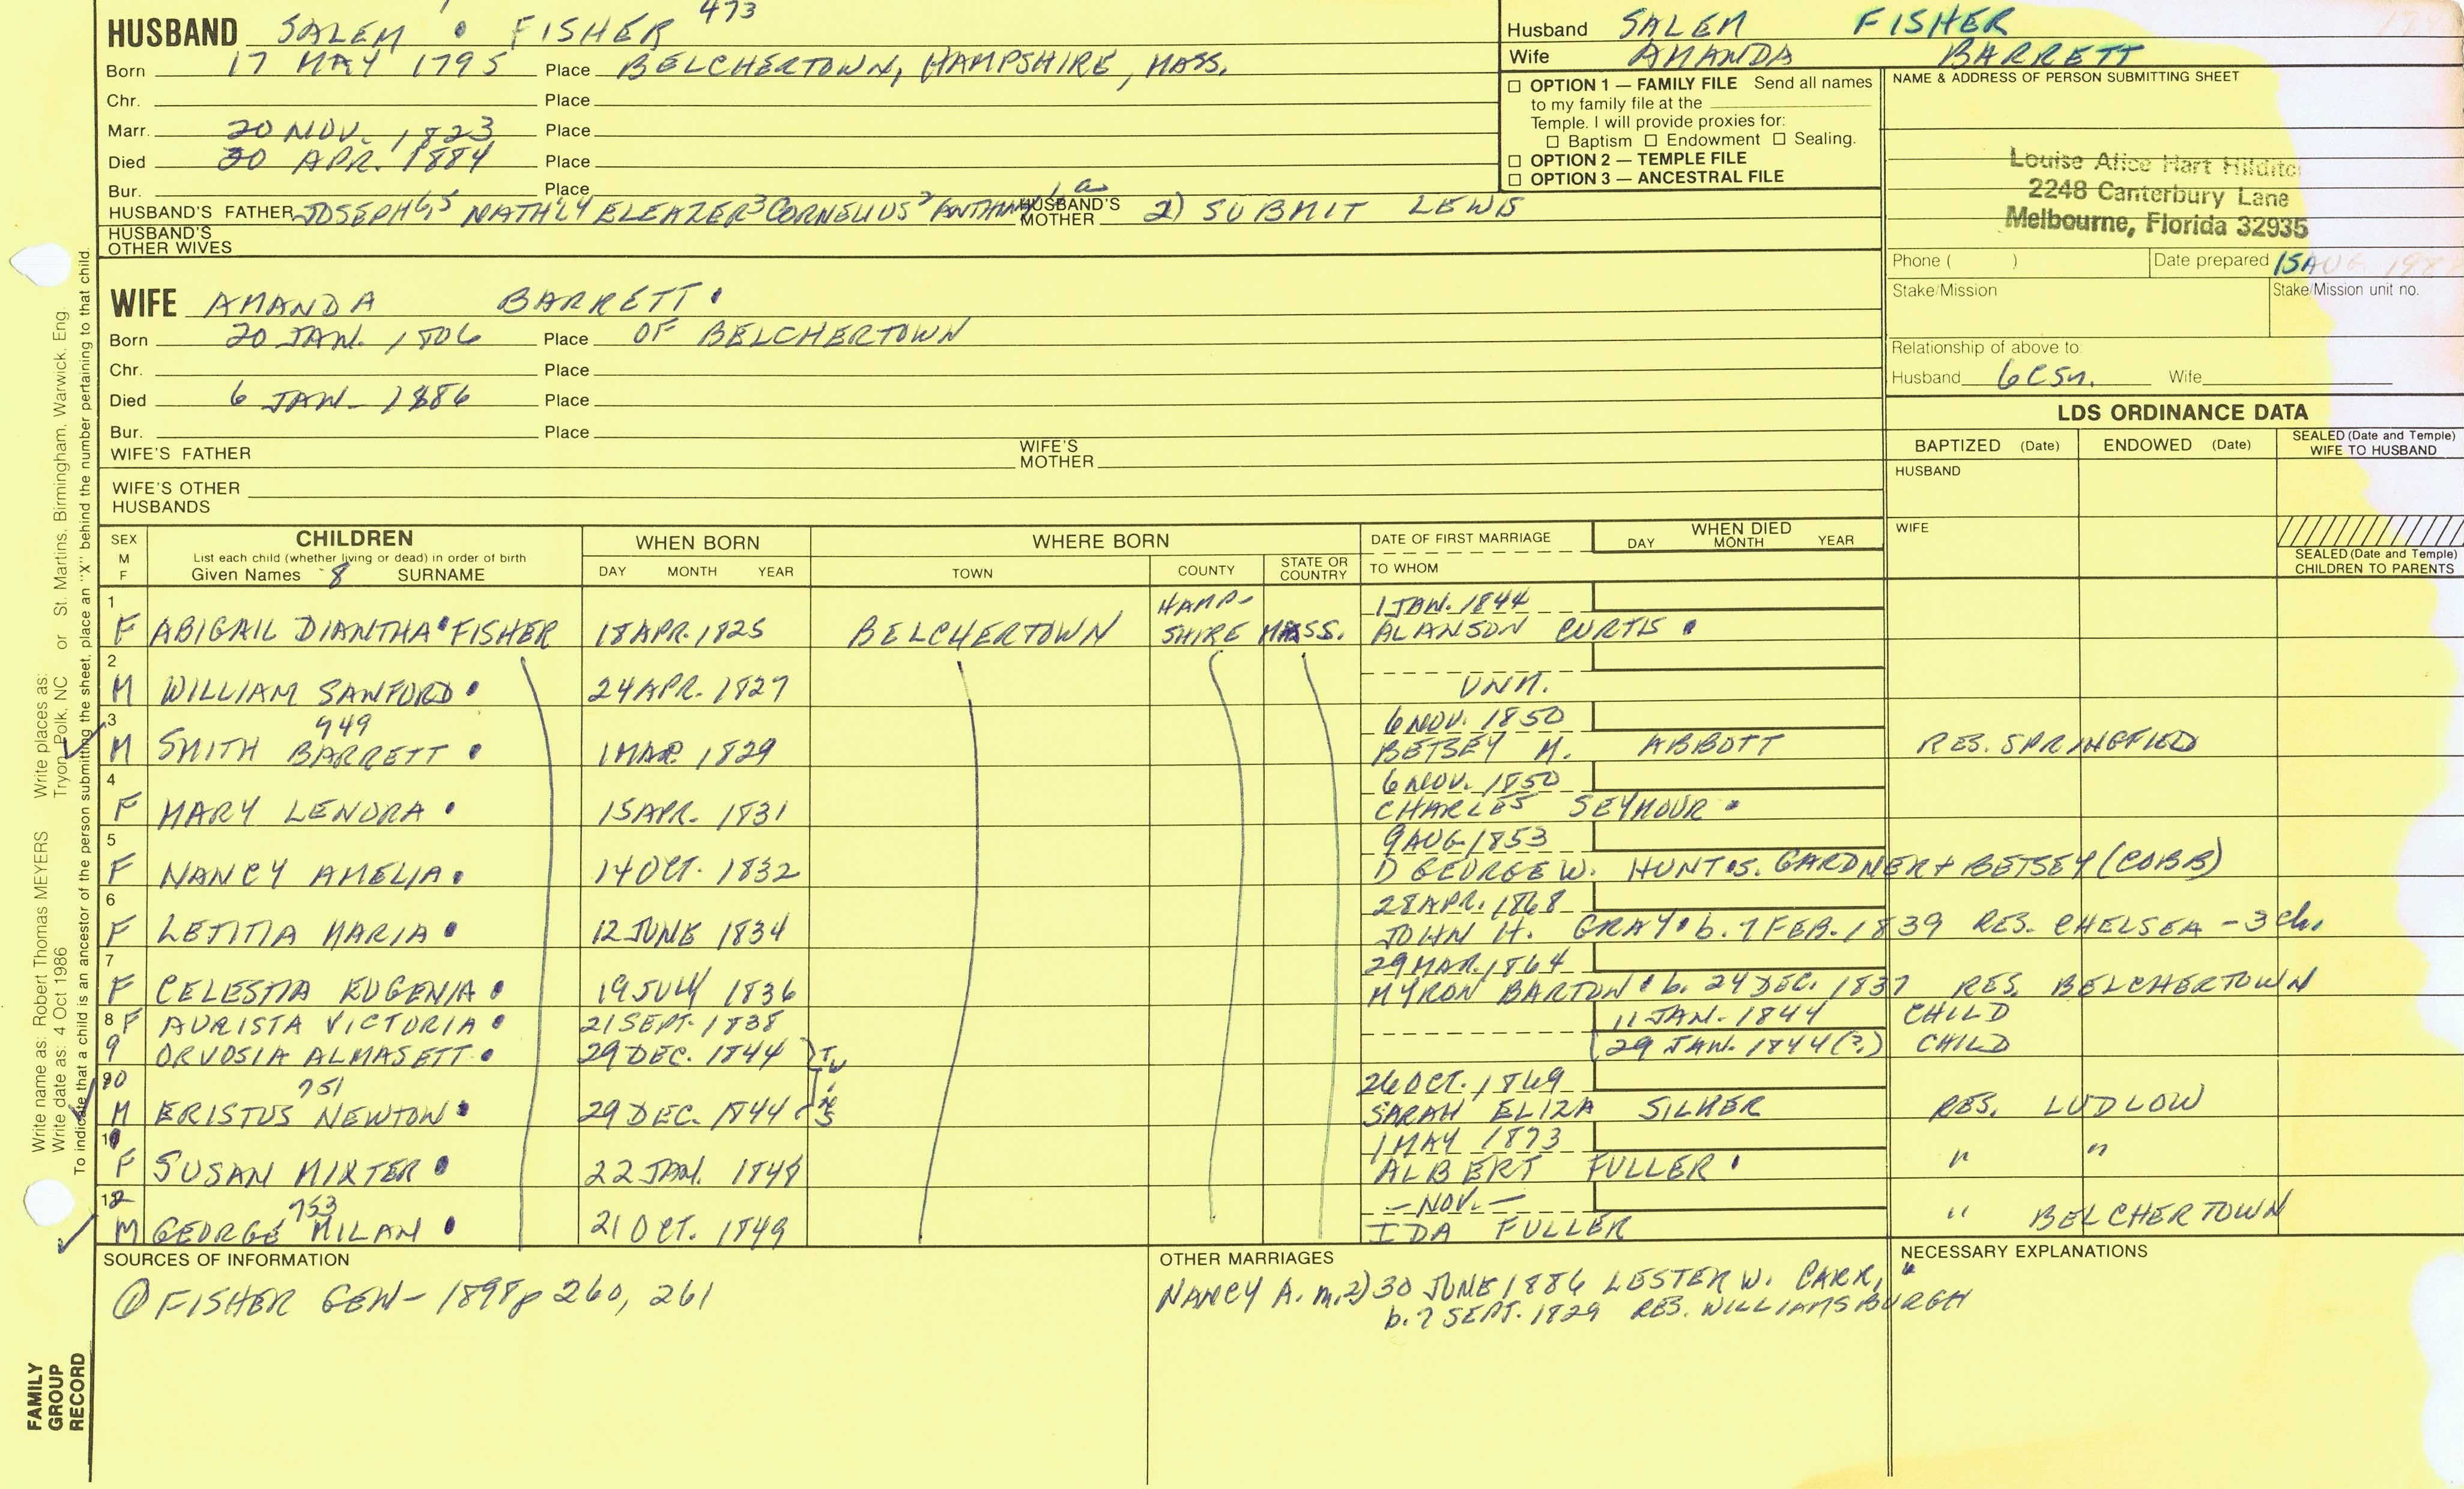 HUSBAND SALEM FISHER 473
Born 17 MAY 1795 Place BELCHERTOWN, HAMPSHIRE, MASS.
Chr. Place
Marr. 20 NOV. 1823 Place
Died 20 APR. 1884 Place
Bur. Place
HUSBAND'S FATHER JOSEPH 6,5 NATH'L 4 ELEAZER 3 CORNELIUS 2 HUSBAND'S MOTHER 2) SUBMIT LEWIS
HUSBAND'S OTHER WIVES
WIFE AMANDA BARRETT
Born 20 JAN. 1806 Place OF BELCHERTOWN
Chr. Place
Died 6 JAN - 1886 Place
Bur. Place
WIFE'S FATHER WIFE'S MOTHER
WIFE'S OTHER HUSBANDS
Husband SALEM FISHER
Wife AMANDA BARRETT
OPTION 1 — FAMILY FILE Send all names
to my family file at the
Temple. I will provide proxies for:
Baptism Endowment Sealing.
OPTION 2 — TEMPLE FILE
OPTION 3 — ANCESTRAL FILE
NAME & ADDRESS OF PERSON SUBMITTING SHEET
Louise Alice Hart
2248 Canterbury Lane
Melbourne, Florida 32935
Phone ( ) Date prepared 15 AUG
Stake/Mission Stake/Mission unit no.
Relationship of above to:
Husband 6 CSN. Wife
LDS ORDINANCE DATA
BAPTIZED (Date) ENDOWED (Date) SEALED (Date and Temple) WIFE TO HUSBAND
HUSBAND
WIFE
SEALED (Date and Temple) CHILDREN TO PARENTS
SEX M F CHILDREN WHEN BORN WHERE BORN DATE OF FIRST MARRIAGE WHEN DIED
List each child (whether living or dead) in order of birth DAY MONTH YEAR
Given Names 8 SURNAME DAY MONTH YEAR TOWN COUNTY STATE OR COUNTRY TO WHOM
1 HAMP- 1 JAN. 1844
F ABIGAIL DIANTHA FISHER 18 APR. 1825 BELCHERTOWN SHIRE MASS. ALANSON CURTIS
2
M WILLIAM SANFORD 24 APR. 1827 UNM.
3 749 6 NOV. 1850
M SMITH BARRETT 1 MAR 1829 BETSEY M. ABBOTT RES. SPRINGFIELD
4 6 NOV. 1850
F MARY LENORA 15 APR. 1831 CHARLES SEYMOUR
5 9 AUG 1853
F NANCY AMELIA 14 OCT. 1832 D GEORGE W. HUNT S. GARDNER + BETSEY (COBB)
6 28 APR. 1868
F LETITIA MARIA 12 JUNE 1834 JOHN H. GRAY b. 7 FEB. 1839 RES. CHELSEA - 3 ch.
7 29 MAR. 1864
F CELESTIA EUGENIA 19 JULY 1836 MYRON BARTON b. 24 DEC. 1837 RES. BELCHERTOWN
8 F AURISTA VICTORIA 21 SEPT. 1838 11 JAN. 1844 CHILD
9 ORVOSIA ALMASETT 29 DEC. 1844 TWINS 29 JAN. 1844 (?) CHILD
10 751 26 OCT. 1869
M ERISTUS NEWTON 29 DEC. 1844 SARAH ELIZA SILVER RES. LUDLOW
11 1 MAY 1873
F SUSAN MIXTER 22 JAN. 1848 ALBERT FULLER " "
12 753 - NOV. -
M GEORGE MILAN 21 OCT. 1849 IDA FULLER " BELCHERTOWN
SOURCES OF INFORMATION
① FISHER GEN - 1898 p 260, 261
OTHER MARRIAGES
NANCY A. m. 2) 30 JUNE 1886 LESTER W. CARR,
b. 7 SEPT. 1829 RES. WILLIAMSBURGH
NECESSARY EXPLANATIONS
Write name as: Robert Thomas MEYERS Write places as: Tryon, Polk, NC or St. Martins, Birmingham, Warwick, Eng.
Write date as: 4 Oct 1986
To indicate that a child is an ancestor of the person submitting the sheet, place an "X" behind the number pertaining to that child.
FAMILY
GROUP
RECORD